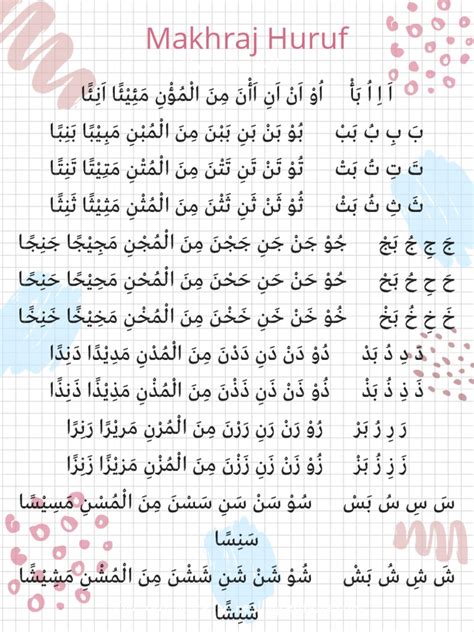 Makhraj Huruf
اَ اِ اُ بَأْ اُوْ اَنْ اَنِ اَأْنَ مِنَ الْمُؤْنِ مَئِيْئًا اَنِئًا
بَ بِ بُ بَبْ بُوْ بَنْ بَنِ بَبْنَ مِنَ الْمُبْنِ مَبِيْبًا بَنِبًا
تَ تِ تُ بَتْ تُوْ تَنْ تَنِ تَتْنَ مِنَ الْمُتْنِ مَتِيْتًا تَنِتًا
ثَ ثِ ثُ بَثْ ثُوْ ثَنْ ثَنِ ثَثْنَ مِنَ الْمُثْنِ مَثِيْثًا ثَنِثًا
جَ جِ جُ بَجْ جُوْ جَنْ جَنِ جَجْنَ مِنَ الْمُجْنِ مَجِيْجًا جَنِجًا
حَ حِ حُ بَحْ حُوْ حَنْ حَنِ حَحْنَ مِنَ الْمُحْنِ مَحِيْحًا حَنِحًا
خَ خِ خُ بَخْ خُوْ خَنْ خَنِ خَخْنَ مِنَ الْمُخْنِ مَخِيْخًا خَنِخًا
دَ دِ دُ بَدْ دُوْ دَنْ دَنِ دَدْنَ مِنَ الْمُدْنِ مَدِيْدًا دَنِدًا
ذَ ذِ ذُ بَذْ ذُوْ ذَنْ ذَنِ ذَذْنَ مِنَ الْمُذْنِ مَذِيْذًا ذَنِذًا
رَ رِ رُ بَرْ رُوْ رَنْ رَنِ رَرْنَ مِنَ الْمُرْنِ مَرِيْرًا رَنِرًا
زَ زِ زُ بَزْ زُوْ زَنْ زَنِ زَزْنَ مِنَ الْمُزْنِ مَزِيْزًا زَنِزًا
سَ سِ سُ بَسْ سُوْ سَنْ سَنِ سَسْنَ مِنَ الْمُسْنِ مَسِيْسًا
سَنِسًا
شَ شِ شُ بَشْ شُوْ شَنْ شَنِ شَشْنَ مِنَ الْمُشْنِ مَشِيْشًا
شَنِشًا